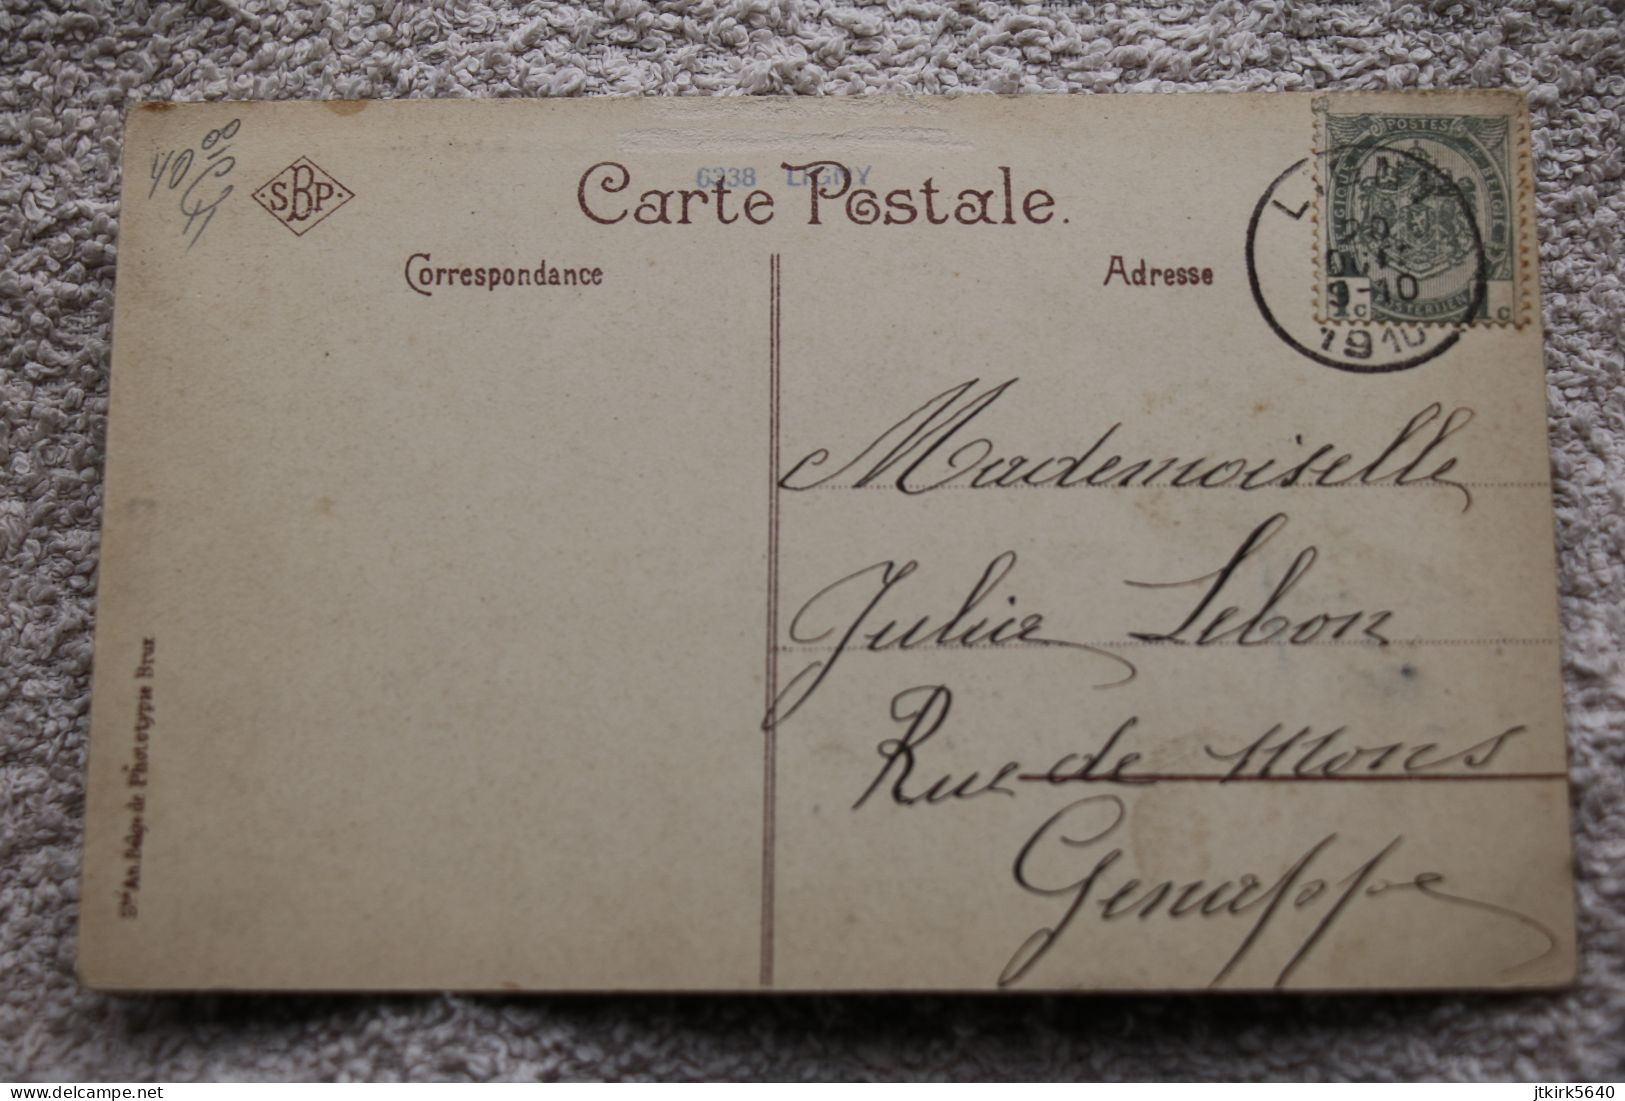 40 00
SBP
6338 LIGNY
Carte Postale.
Correspondance
Adresse
POSTES
BELGIQUE BELGIË
1c 1c
LIGNY
20
9-10
1910
Mademoiselle
Julia Lebon
Rue de Mons
Genappe
Sté An. Belge de Phototypie Brux
delcampe.net
jtkirk5640